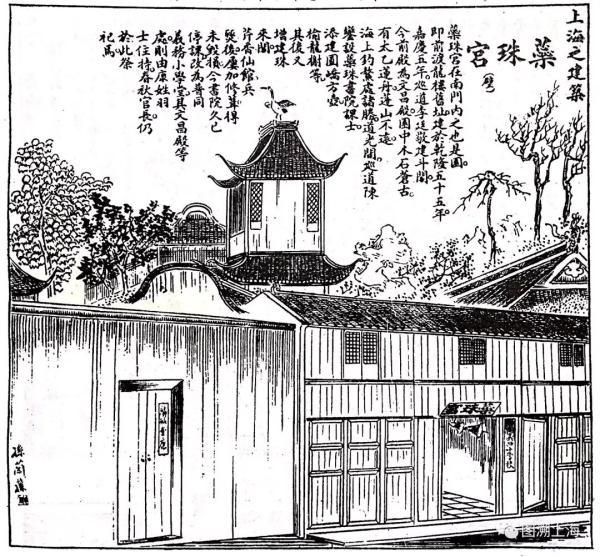 上海之建築
蘂珠宮
蘂珠宮在南門內之也是園。
即前渡龍樓舊址建於乾隆五十五年
嘉慶五年。巡道李廷敬建斗閣。
今前殿為文昌殿。園中木石蒼古。
有太乙蓮舟蓬山不遠。
海上釣鰲處諸勝。道光間。巡道陳
鑾設蘂珠書院課士。
添建圓嶠方壺
榆龍榭等。
其後又
增建珠
來閣。
芹香仙館兵
燹後屢加修葺得
未毀損今書院久已
停課改為普同
義務小學堂其文昌殿等
處。則由康姓羽
士住持。春秋官長仍
於此祭
祀焉
蘂珠宮
孫蘭蓀
图溯上海